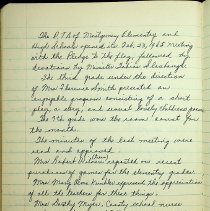 The P.T.A of Montgomery Elementary and
High Schools opened its Feb. 23, 1965 meeting
with the Pledge to the flag, followed by
devotions by Minister
The third grade under the direction
of Mrs Florence Smith presented an
enjoyable program consisting of a short
play, a story, and several
The 7th grade won the room count for
the month.
The minutes of the last meeting were
read and approved.
Mrs Robert Watson reported on recent
purchase of games for the elementary grades.
Mrs Mary Anne expressed the appreciation
of all the teachers for these things.
Mrs Dorothy Moyer, County school nurse